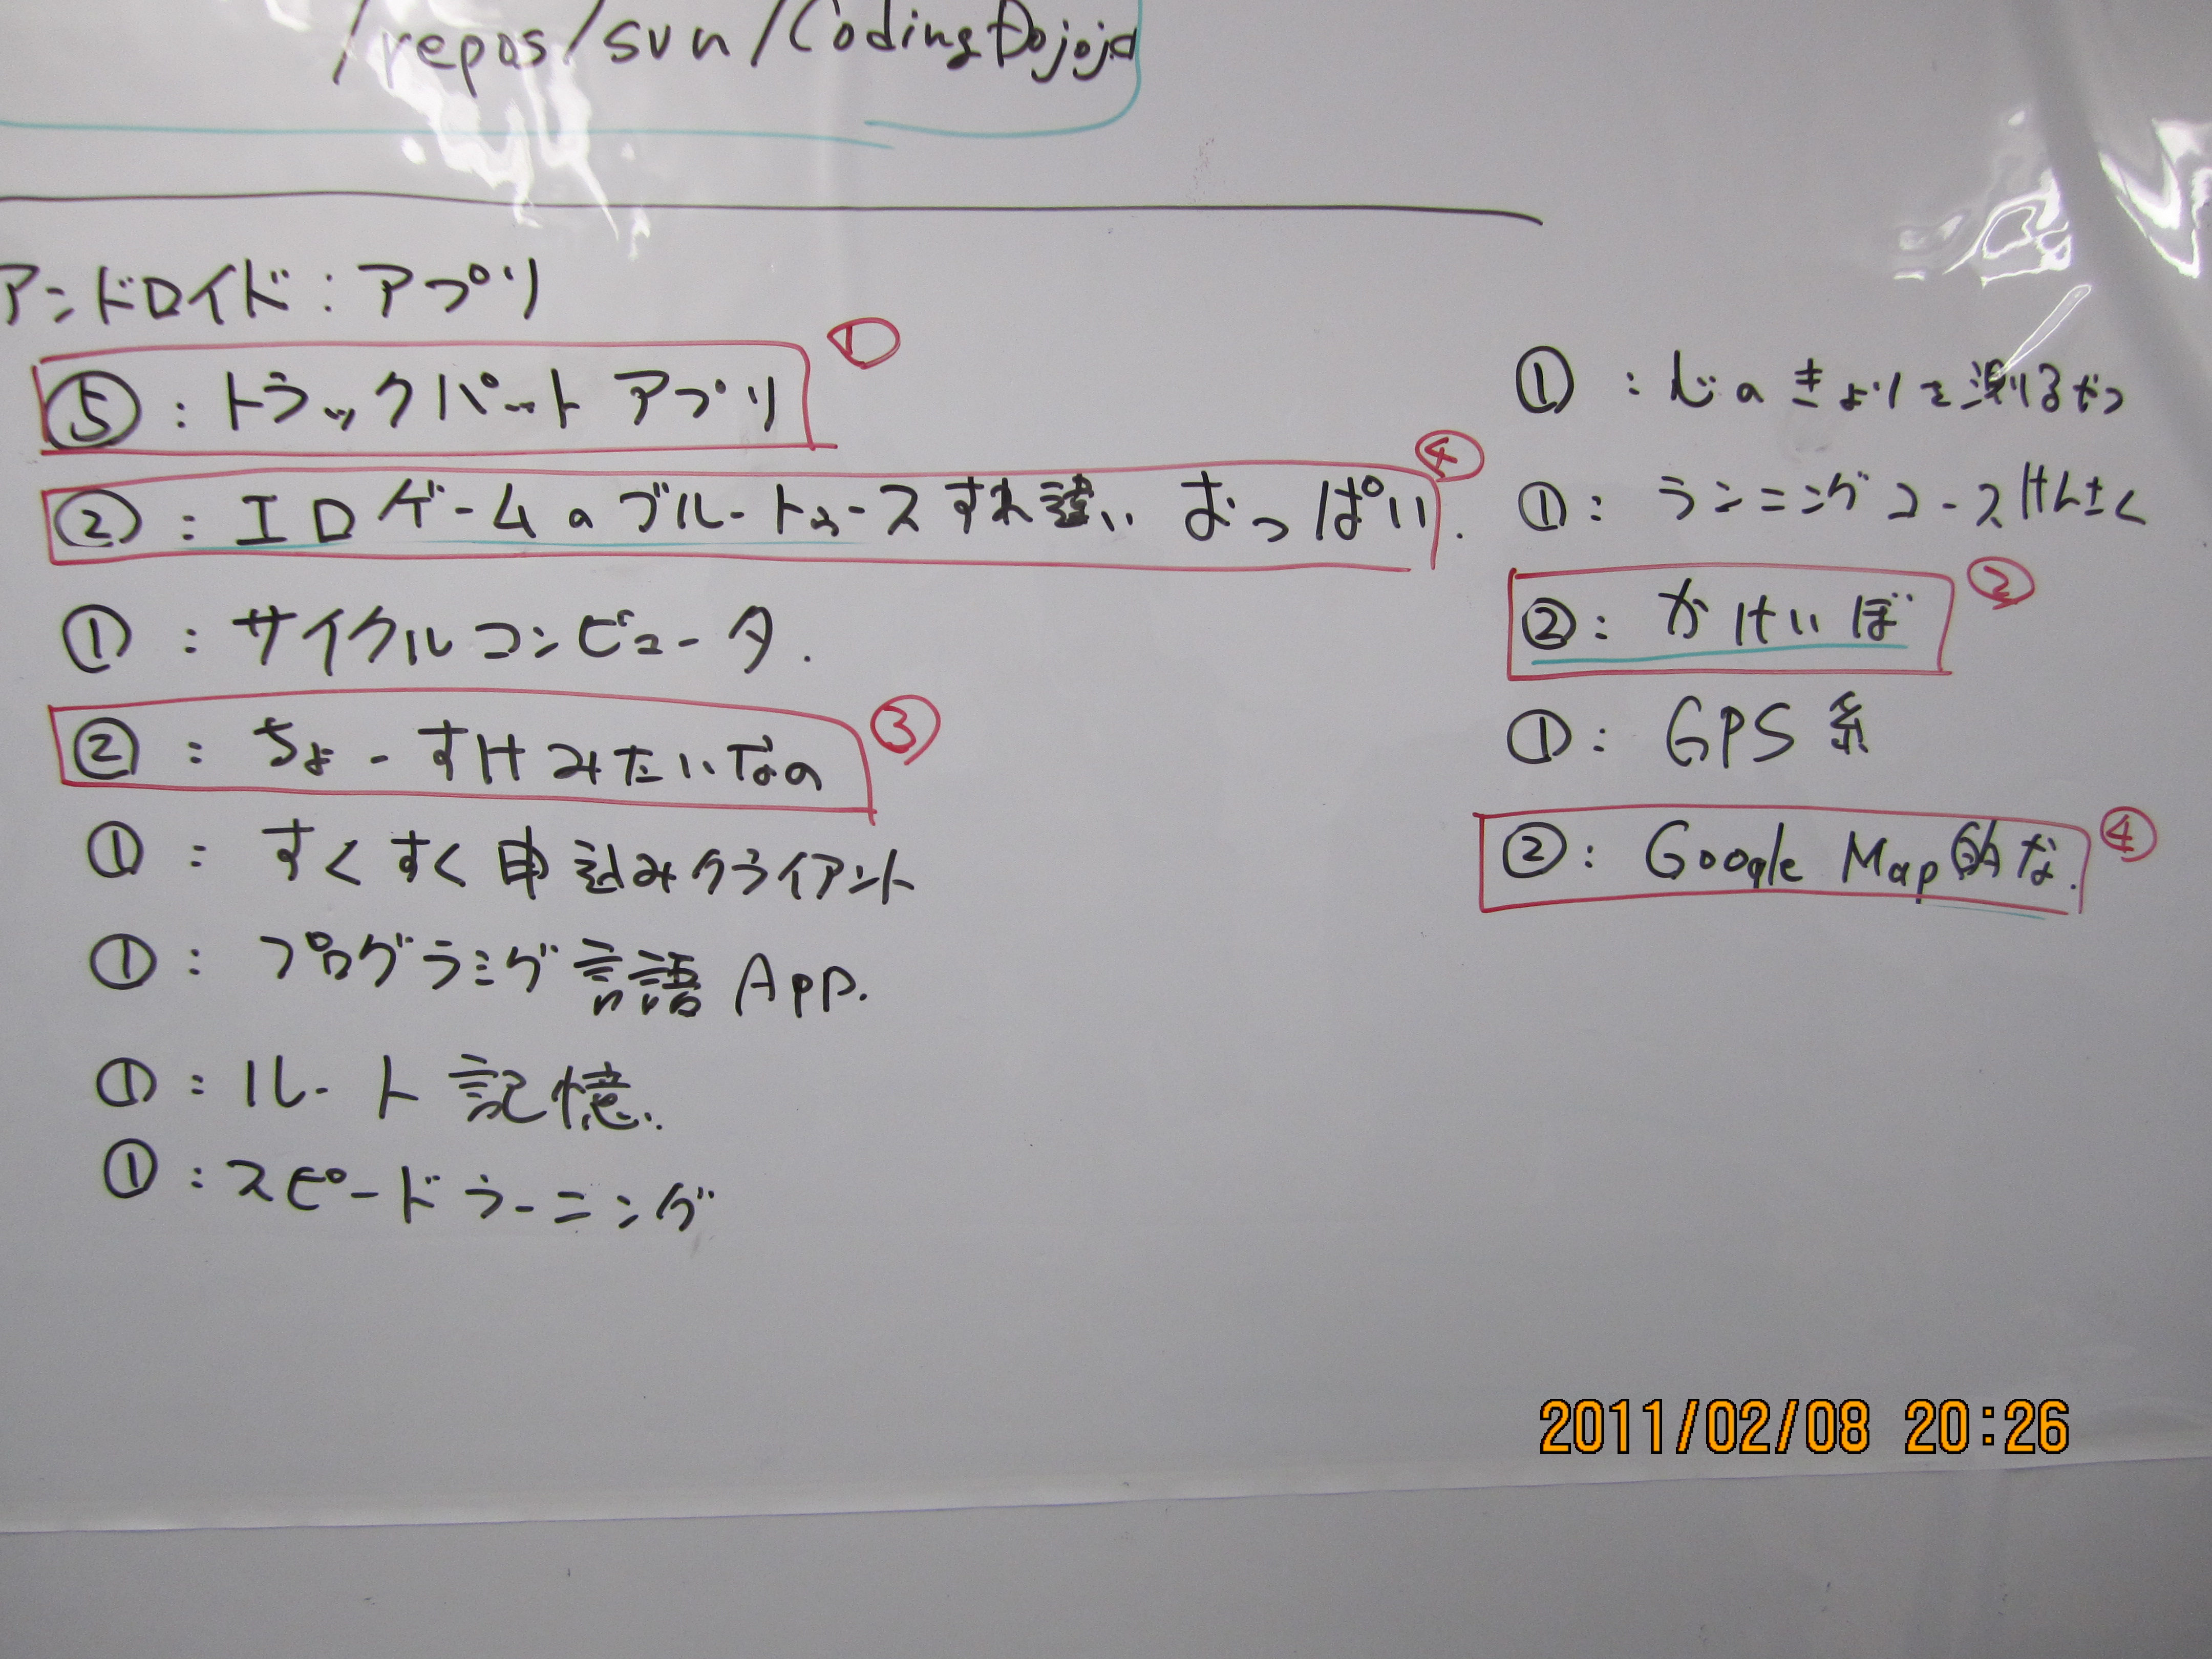 /repos/svn/CodingDojoja
アンドロイド:アプリ
①
⑤:トラックパットアプリ
④
②:エロゲームのブルートゥースすれ違い おっぱい.
①:サイクルコンピュータ.
③
②:ちょーすけみたいなの
①:すくすく申込みクライアント
①:プログラミグ言語App.
①:ルート記憶.
①:スピードラーニング
①:心のきょりを測るやつ
①:ランニングコースけんさく
②
②:かけいぼ
①:GPS系
④
②:Google Map的な.
2011/02/08 20:26